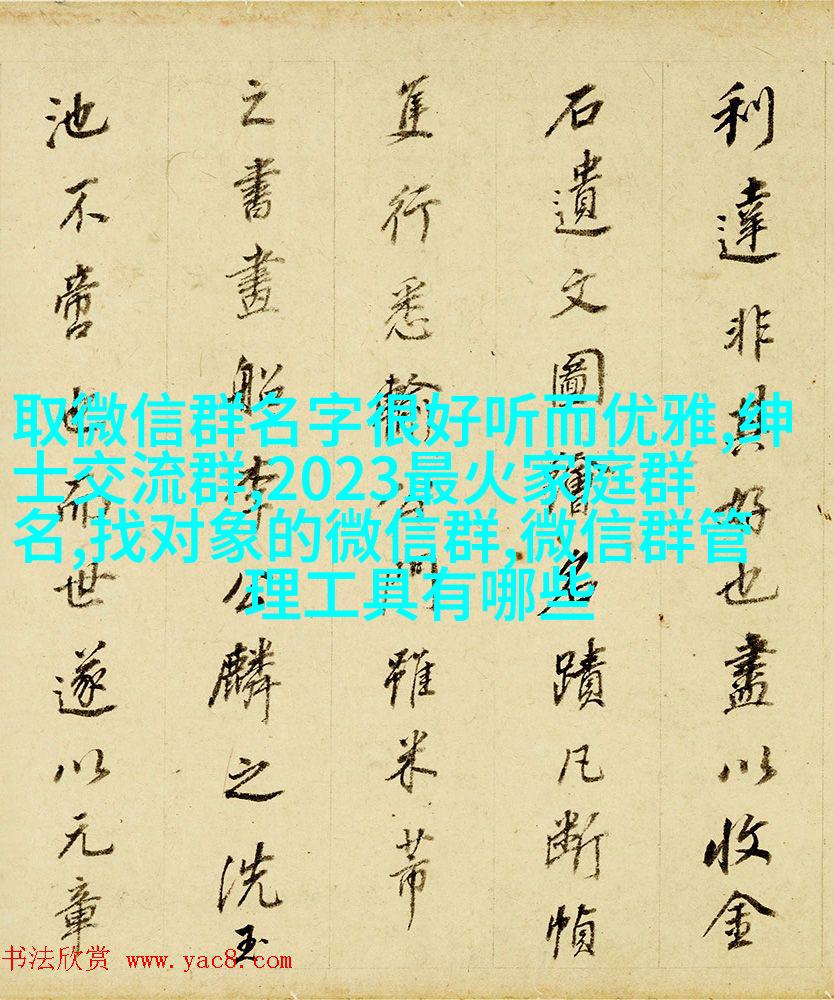 利達非其好也盡以收金
石遺文圖舊名蹟凡斷幀
隻行悉輸雖米芾
之書畫船李公麟之洗玉
池不啻也而世遂以元章
取微信群名字很好听而优雅,绅
士交流群,2023最火家庭群
名,找对象的微信群,微信群管
理工具有哪些
书法欣赏 www.yac8.com